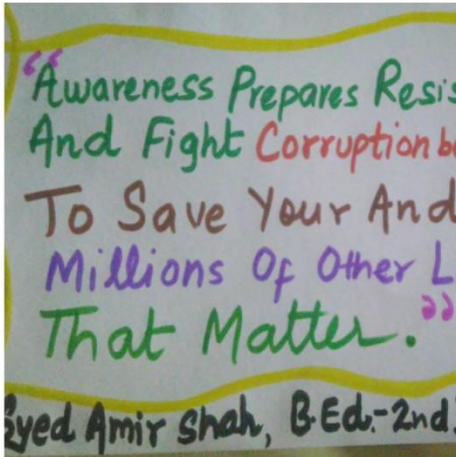 “Awareness Prepares Resis
And Fight Corruption b
To Save Your And
Millions Of Other L
That Matter.”
Syed Amir Shah, B.Ed.-2nd